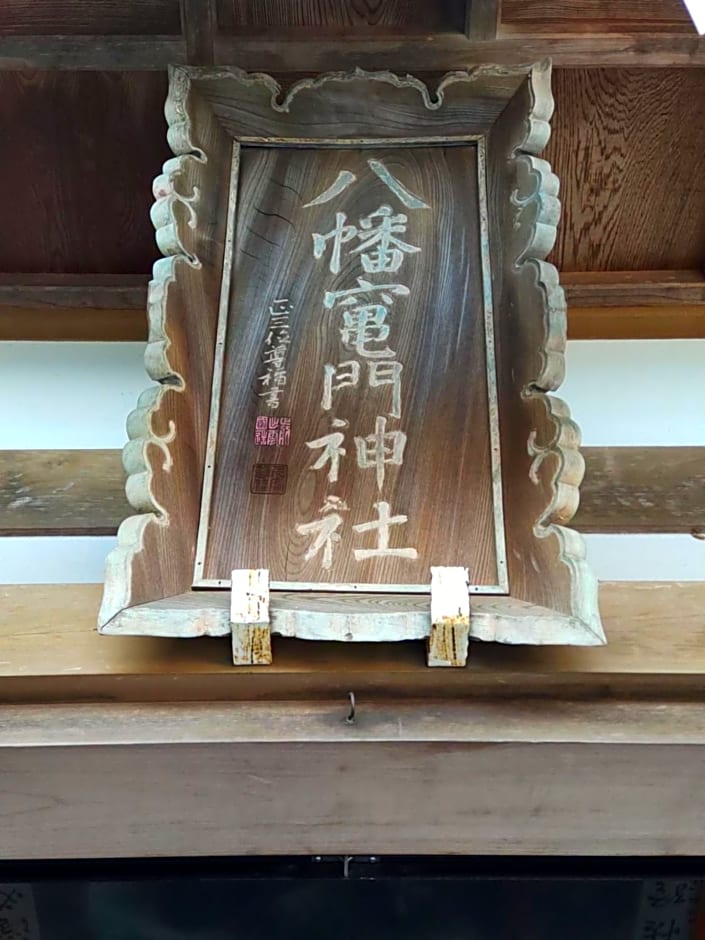 八幡竈門神社
正三位尊福書